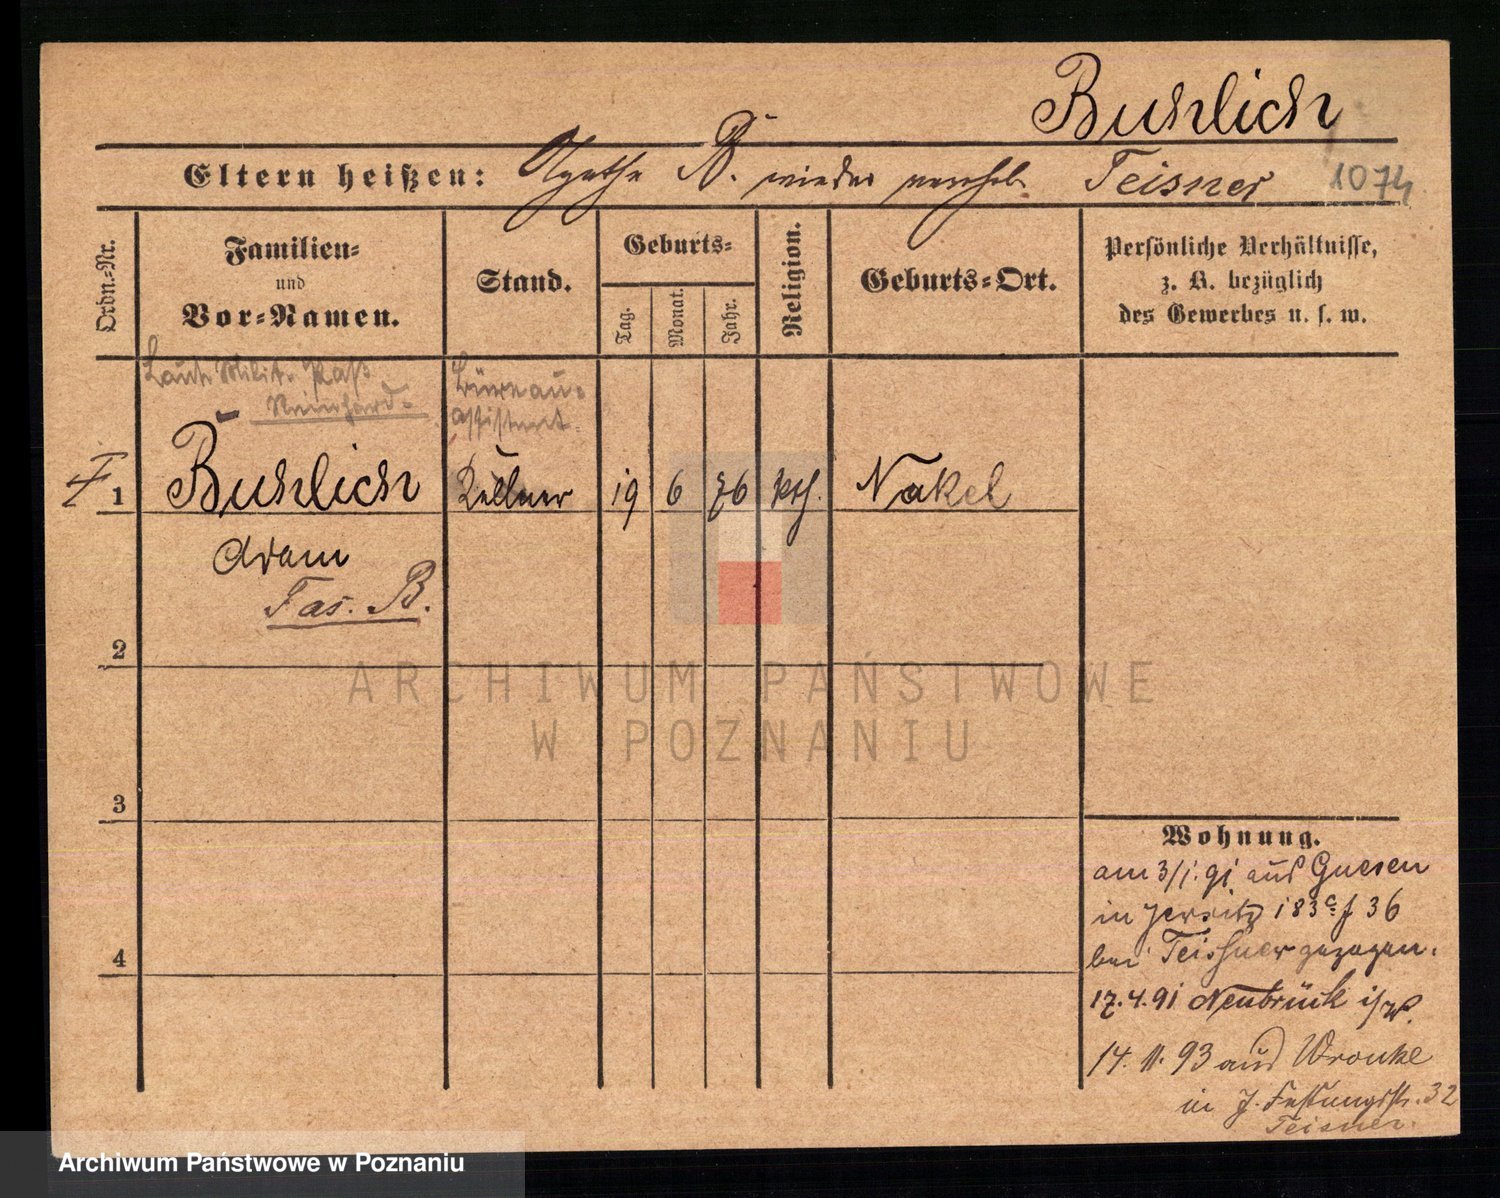 Buhlich
Eltern heißen: Agatha B. wieder vereh. Teisner 1074
Ordn.-Nr.
Familien-
und
Vor-Namen.
Stand.
Geburts-
Tag.
Monat.
Jahr.
Religion.
Geburts-Ort.
Persönliche Verhältnisse,
z. B. bezüglich
des Gewerbes u. s. w.
Laut Milit. Paß
Reinhard
Büreau-
assistent.
1 Buhlich Kellner 19 6 76 kth. Nakel
Adam
Fas. B.
2
3
4
Wohnung.
am 3/1.91 aus Gnesen
in Jersitz 183c f 36
bei Teisner gezogen.
17.4.91 Neubrück
14.11.93 aus Wronke
in J. Festungsstr. 32
Teisner.
ARCHIWUM PAŃSTWOWE
W POZNANIU
Archiwum Państwowe w Poznaniu